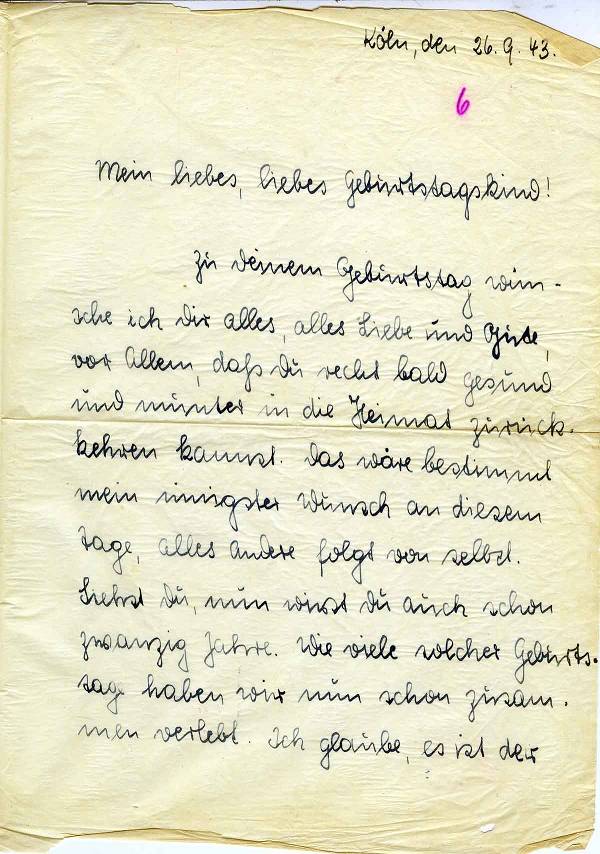 Köln, den 26.9.43.
6
Mein liebes, liebes Geburtstagskind!
Zu deinem Geburtstag wün-
sche ich dir alles, alles Liebe und Gute,
vor Allem, daß du recht bald gesund
und munter in die Heimat zurück-
kehren kannst. Das wäre bestimmt
mein innigster Wunsch an diesem
Tage, alles andere folgt von selbst.
Siehst du, nun wirst du auch schon
zwanzig Jahre. Wie viele solcher Geburts-
tage haben wir nun schon zusam-
men verlebt. Ich glaube, es ist der